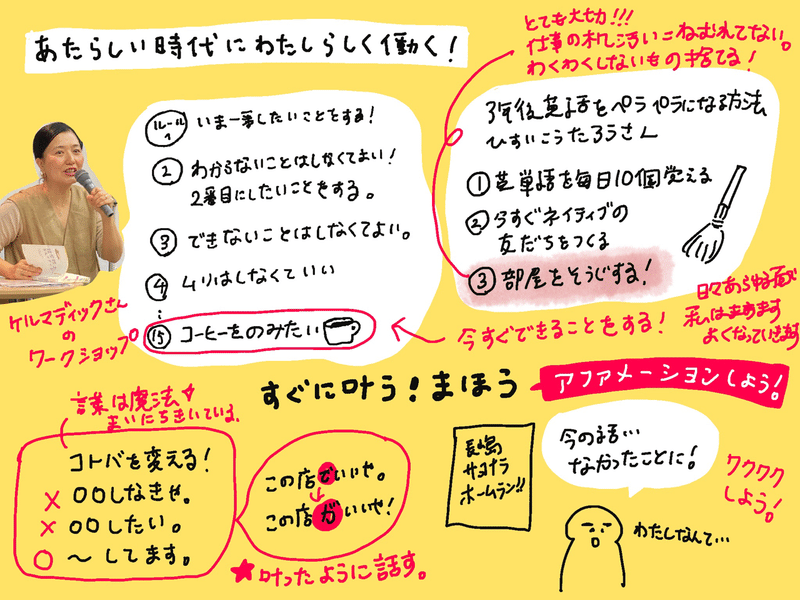 あたらしい時代にわたしらしく働く!
とても大切!!!
仕事の机、活いこねむれてない。
わくわくしないもの捨てる!
ルール1 いま一番したいことをする!
② わからないことはしなくてよい!
2番目にしたいことをする。
③ できないことはしなくてよい。
④ ムリはしなくていい
⑮ コーヒーをのみたい
ケルマディックさん
の
ワークショップ
3年後英語をペラペラになる方法
ひすいこうたろうさん
① 英単語を毎日10個覚える
② 今すぐネイティブの
友だちをつくる
③ 部屋をそうじする!
今すぐできることをする!
日々あらゆる面で
私はますます
よくなっていきます
すぐに叶う!まほう
アファメーションしよう!
言葉は魔法
まいにちきいている。
コトバを変える!
× ○○しなきゃ。
× ○○したい。
○ 〜してます。
この店でいいや。
↓
この店がいいや!
★叶ったように話す。
長嶋
サヨナラ
ホームラン!!
今の話…
なかったことに!
ワクワク
しよう!
わたしなんて…